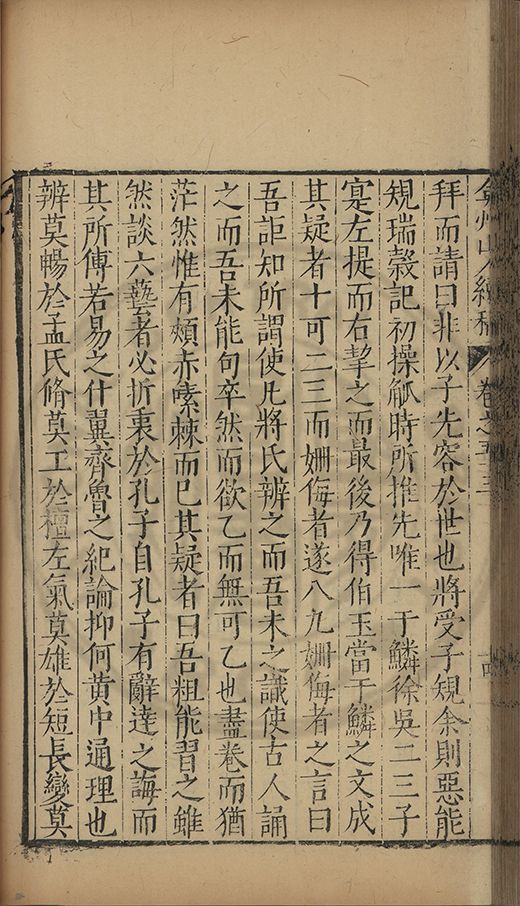 弇州山人續稿 卷之五十三
拜而請曰非以子先容於世也將受子規余則惡能
規瑞穀記初操觚時所推先唯一于鱗徐吳二三子
寔左提而右挈之而最後乃得伯玉當于鱗之文成
其疑者十可二三而姍侮者遂八九姍侮者之言曰
吾詎知所謂使凡將氏辨之而吾未之識使古人誦
之而吾未能句卒然而欲乙而無可乙也盡卷而猶
茫然惟有頰赤嗉棘而已其疑者曰吾粗能習之雖
然談六藝者必折衷於孔子自孔子有辭達之誨而
其所傳若易之什翼齊魯之紀論抑何黃中通理也
辨莫暢於孟氏脩莫工於檀左氣莫雄於短長變莫